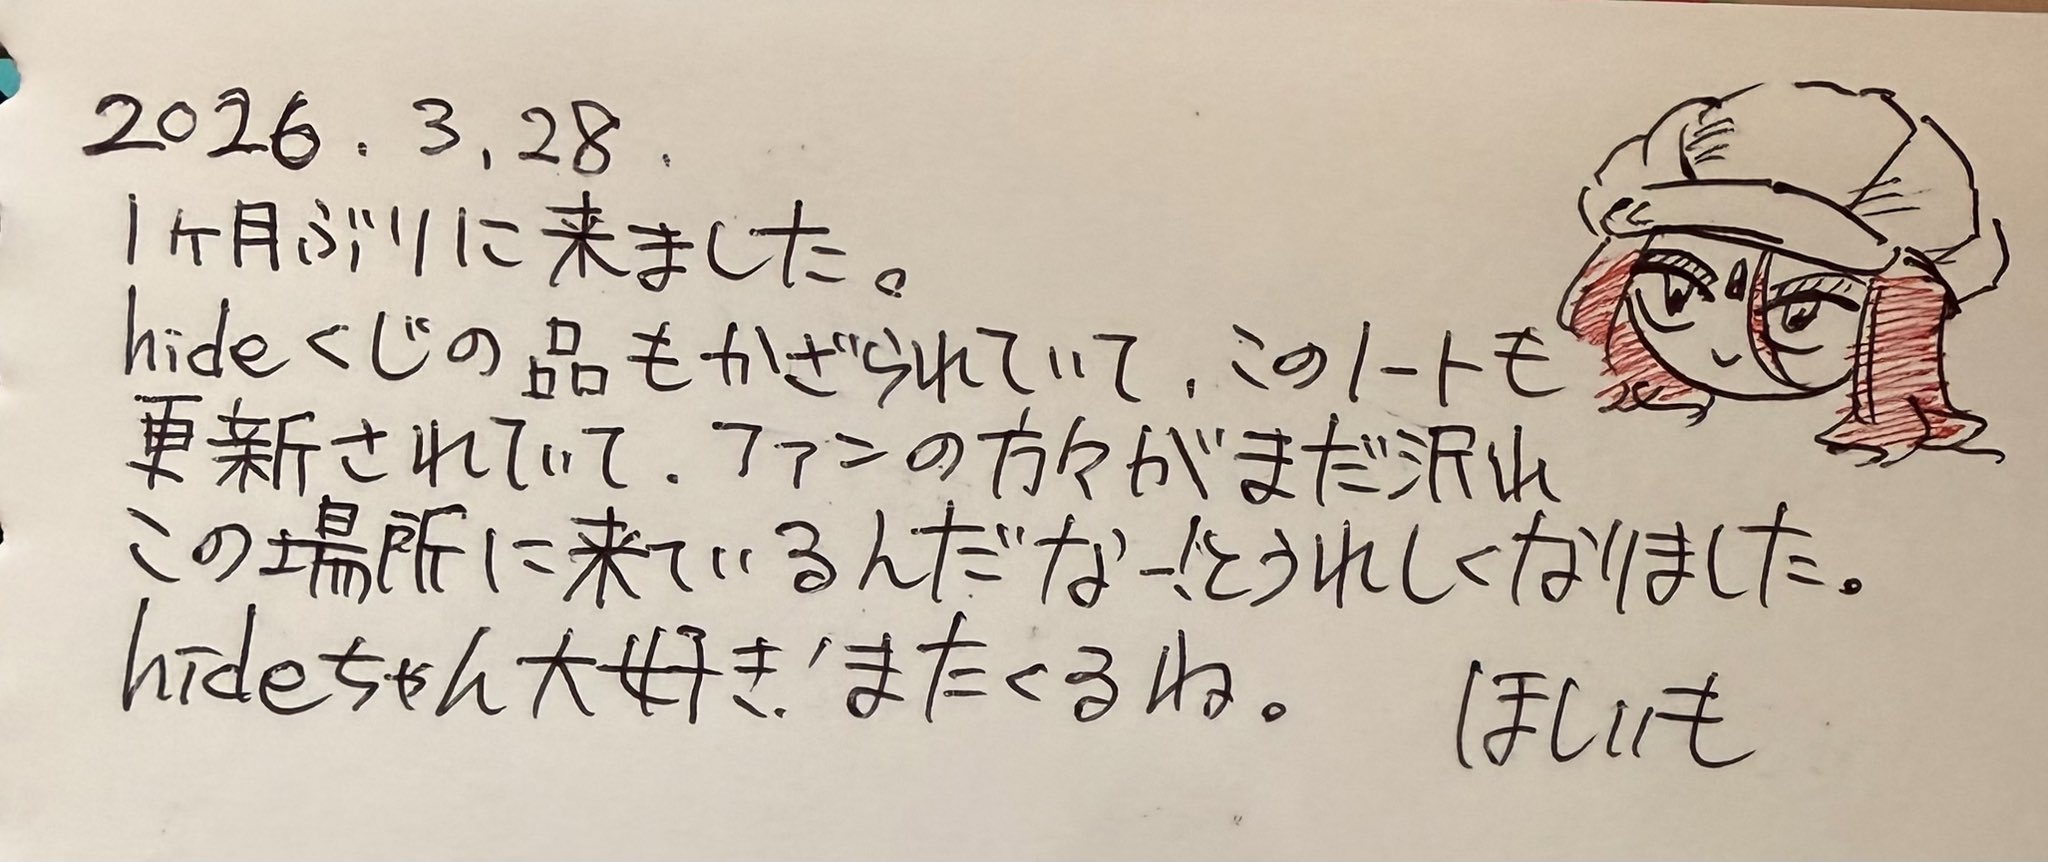 2026.3.28.
1ヶ月ぶりに来ました。
hideくじの品もかざられていて、このノートも
更新されていて、ファンの方々がまだ沢山
この場所に来ているんだなー!とうれしくなりました。
hideちゃん大好き!またくるね。
ほしいも